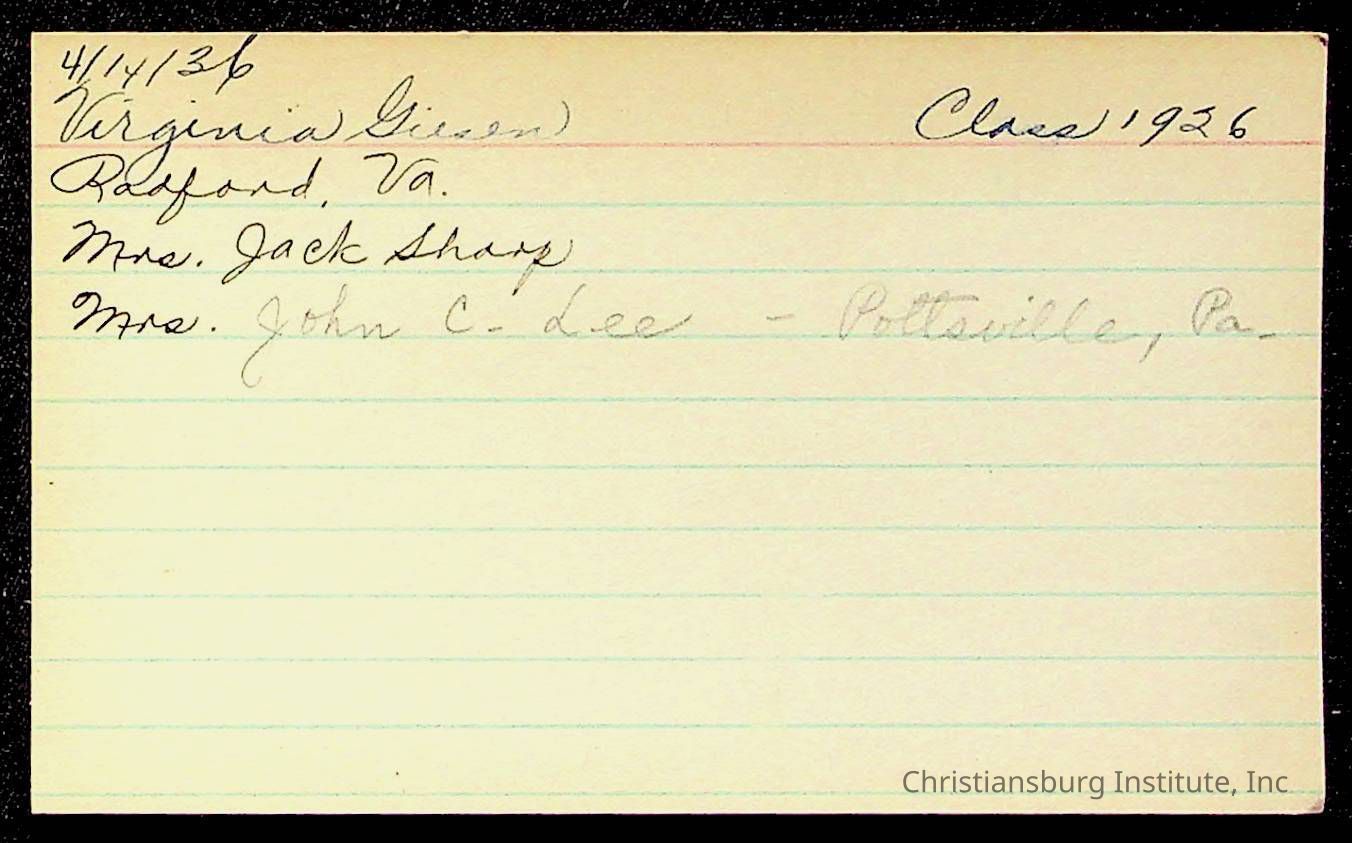 4/14/36
Virginia Giesen Class 1926
Radford, Va.
Mrs. Jack Sharp
Mrs. John C. Lee - Pottsville, Pa.
Christiansburg Institute, Inc